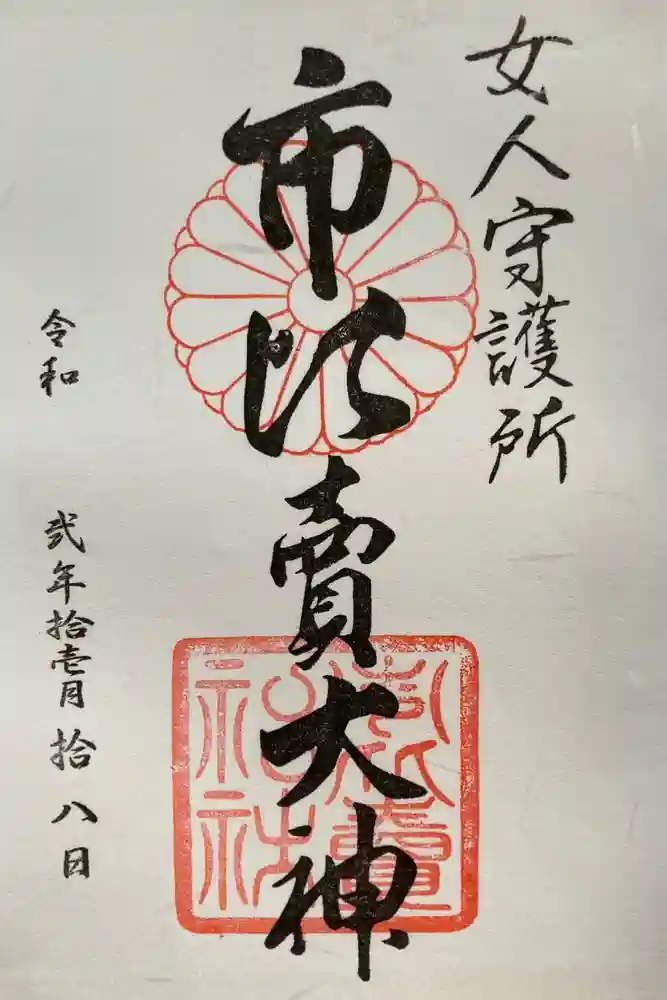 女人守護所
市比賣大神
令和 弐年拾壱月拾八日
市比賣神社